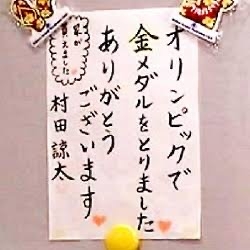 オリンピックで
金メダルをとりました
ありがとう
ございます
家が
買えました
村田 諒太